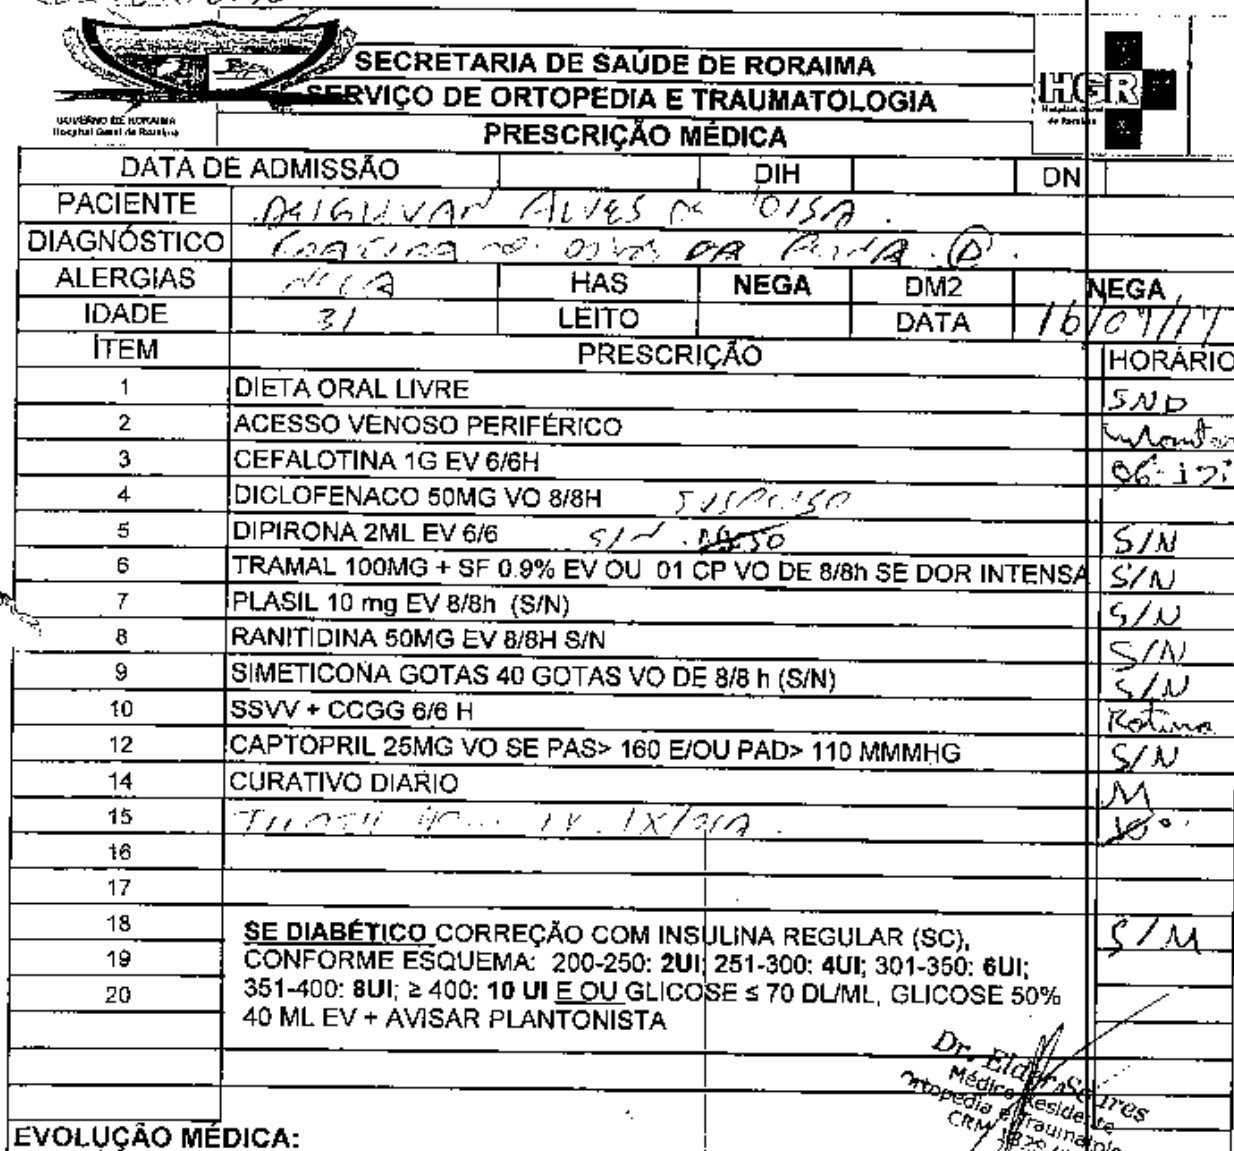 SECRETARIA DE SAÚDE DE RORAIMA
SERVIÇO DE ORTOPEDIA E TRAUMATOLOGIA
PRESCRIÇÃO MÉDICA
GOVERNO DE RORAIMA
Hospital Geral de Roraima
HGR
Hospital Geral
de Roraima
DATA DE ADMISSÃO DIH DN
PACIENTE ALVES
DIAGNÓSTICO DA
ALERGIAS HAS NEGA DM2 NEGA
IDADE 31 LEITO DATA 16/09/17
ÍTEM PRESCRIÇÃO HORÁRIO
1 DIETA ORAL LIVRE SND
2 ACESSO VENOSO PERIFÉRICO
3 CEFALOTINA 1G EV 6/6H
4 DICLOFENACO 50MG VO 8/8H SUSPENSO
5 DIPIRONA 2ML EV 6/6 S/N S/N
6 TRAMAL 100MG + SF 0.9% EV OU 01 CP VO DE 8/8h SE DOR INTENSA S/N
7 PLASIL 10 mg EV 8/8h (S/N) S/N
8 RANITIDINA 50MG EV 8/8H S/N S/N
9 SIMETICONA GOTAS 40 GOTAS VO DE 8/8 h (S/N) S/N
10 SSVV + CCGG 6/6 H Rotina
12 CAPTOPRIL 25MG VO SE PAS> 160 E/OU PAD> 110 MMMHG S/N
14 CURATIVO DIARIO M
15
16
17
18 SE DIABÉTICO CORREÇÃO COM INSULINA REGULAR (SC), S/N
19 CONFORME ESQUEMA: 200-250: 2UI; 251-300: 4UI; 301-350: 6UI;
20 351-400: 8UI; ≥ 400: 10 UI E OU GLICOSE ≤ 70 DL/ML, GLICOSE 50%
40 ML EV + AVISAR PLANTONISTA
Dr. Elder Soares
Médico Residente
Ortopedia e Traumatologia
CRM
EVOLUÇÃO MÉDICA: